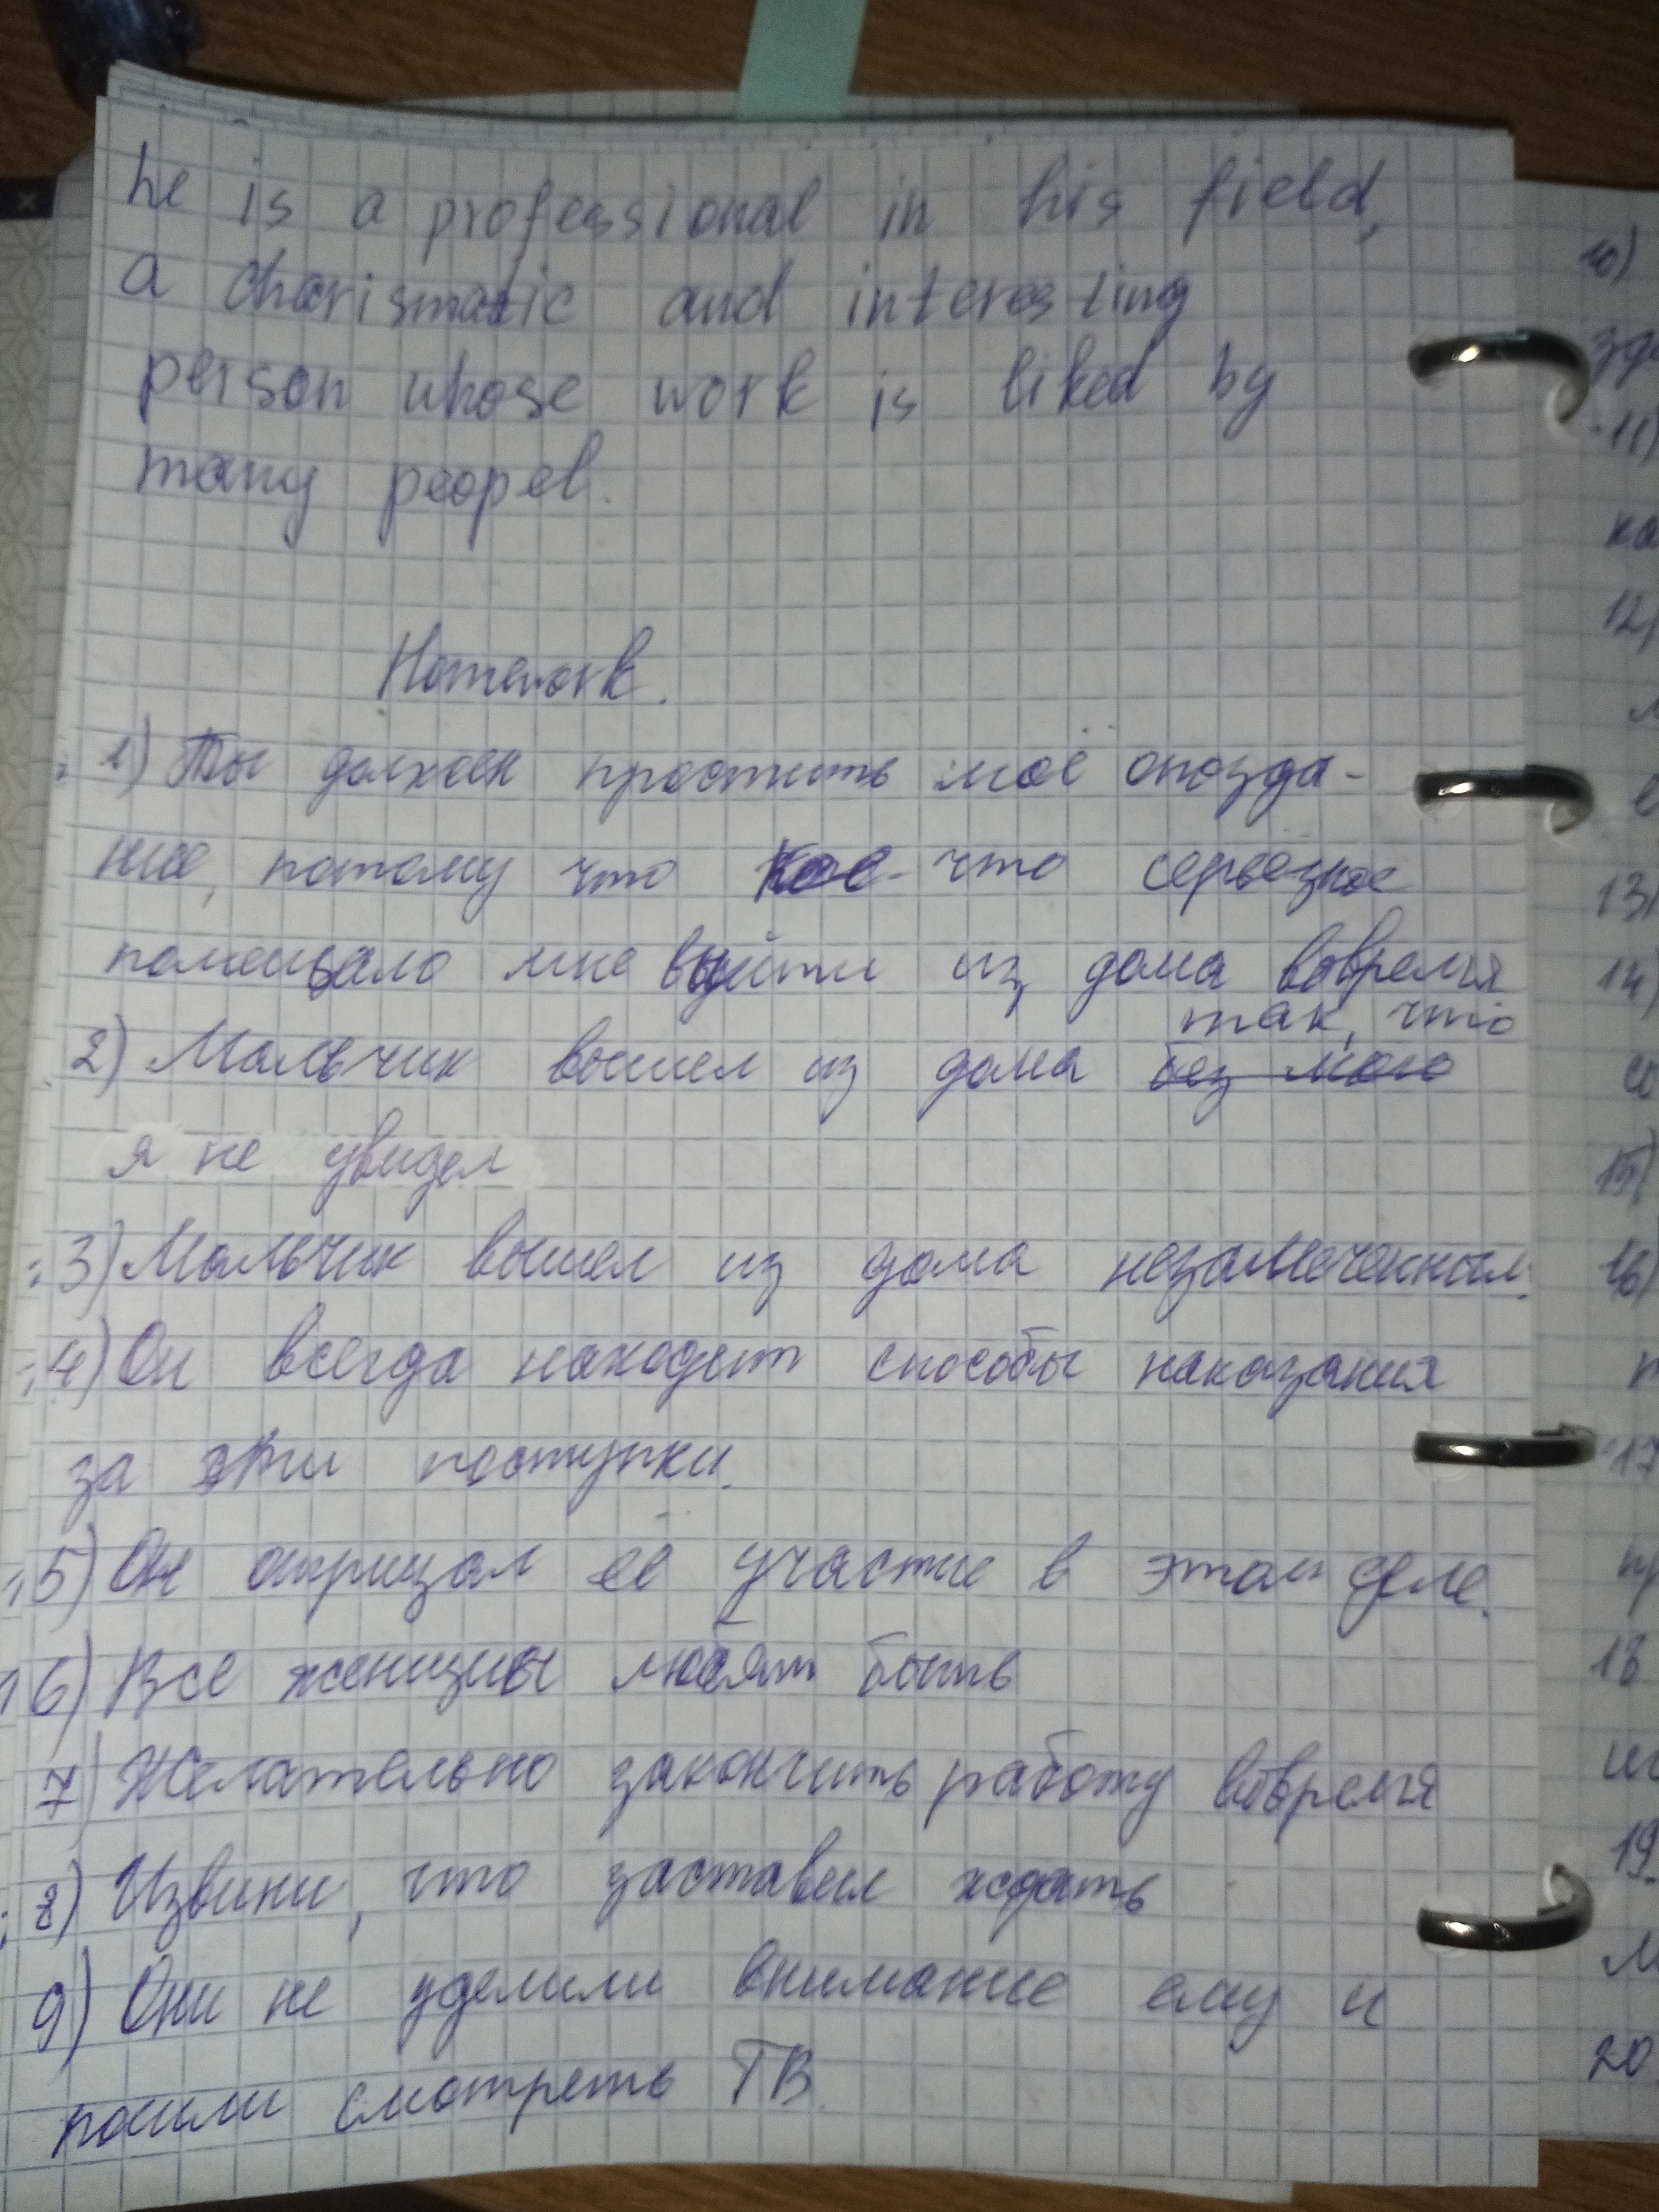 he is a professional in his field,
a charismatic and interesting
person whose work is liked by
many peopel.
Homework.
1) Ты должен простить моё опозда-
ние, потому что кое-что серьёзное
помешало мне выйти из дома вовремя
так, что
2) Мальчик вышел из дома без моего
я не увидел
3) Мальчик вышел из дома незамеченным.
4) Он всегда находит способы наказания
за эти поступки.
5) Он отрицал её участие в этом деле.
6) Все женщины любят быть
7) Желательно закончить работу вовремя
8) Извини, что заставил ждать
9) Они не уделили внимание ему и
пошли смотреть ТВ.
10)
11)
12)
13)
14)
15)
16)
17
18
19.
20